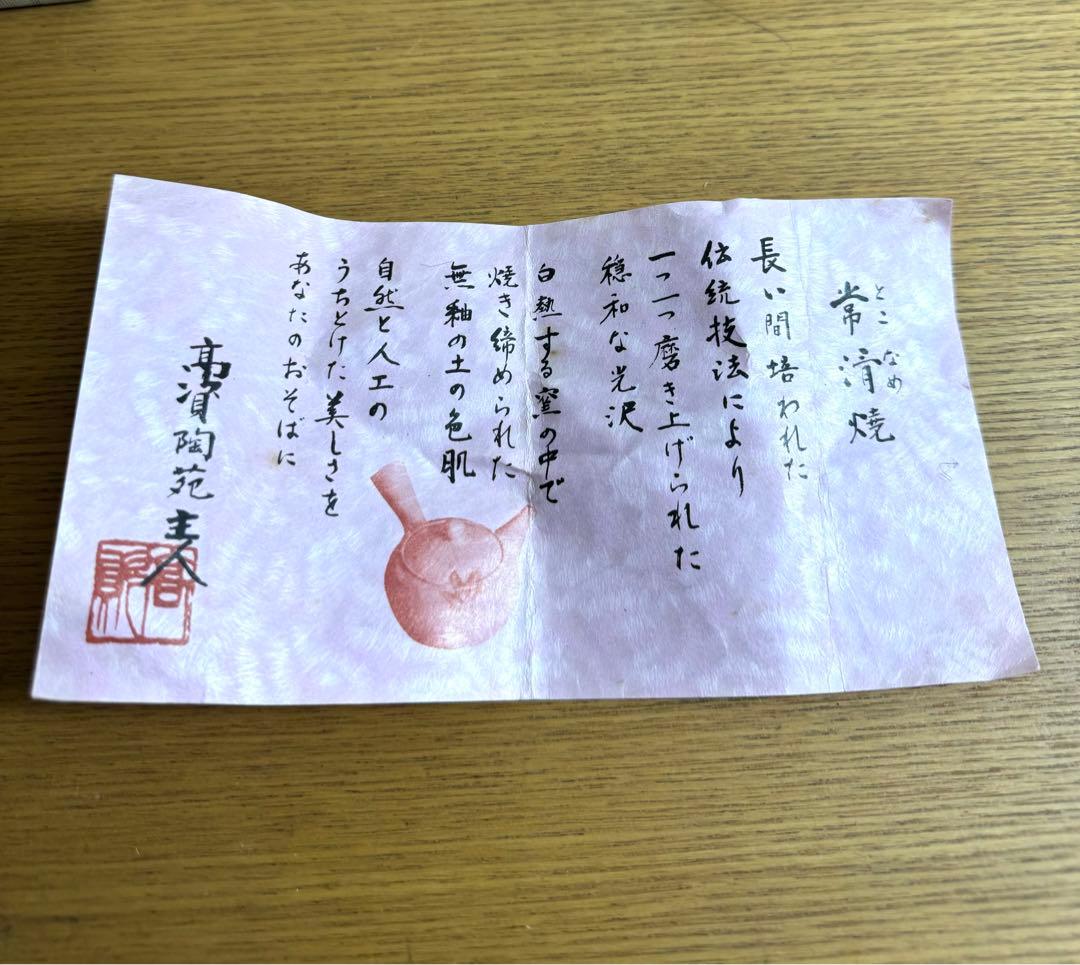 常滑焼
とこなめ
長い間培われた
伝統技法により
一つ一つ磨き上げられた
穏和な光沢
白熱する窯の中で
焼き締められた
無釉の土の色肌
自然と人工の
うちとけた美しさを
あなたのおそばに
高資陶苑主人